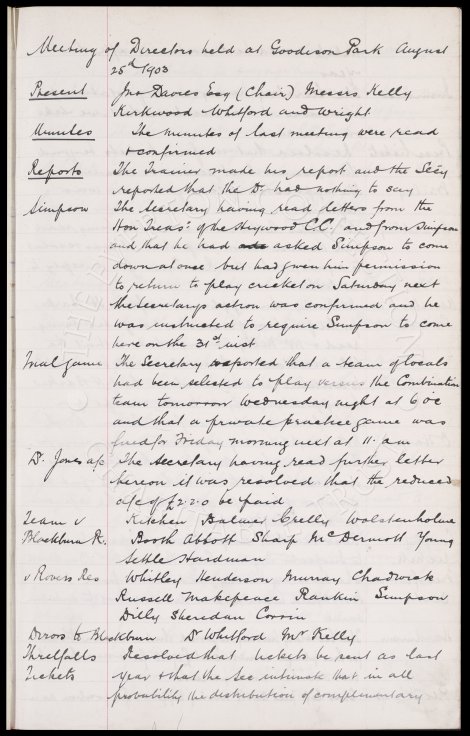 Meeting of Directors held at Goodison Park August
25th 1903
Present Mr Davies Esq (Chair) Messrs Kelly
Kirkwood Whitford and Wright
Minutes The minutes of last meeting were read
& confirmed
Reports The Trainer made his report and the Secy
reported that the Dr. had nothing to say
Simpson The Secretary having read letters from the
Hon Treas. of the Heywood C.C. and from Simpson
and that he had asked Simpson to come
down at once but had given him permission
to return to play cricket on Saturday next
the Secretarys action was confirmed and he
was instructed to require Simpson to come
here on the 31st inst
Trial game The Secretary reported that a team of locals
had been selected to play versus the Combination
team tomorrow Wednesday night at 6 oc
and that a private practice game was
fixed for Friday morning next at 11. am
Dr. Jones a/c The Secretary having read further letter
hereon it was resolved that the reduced
a/c of £2.2.0 be paid
Team v Kitchen Balmer Crelly Wolstenholme
Blackburn R. Booth Abbott Sharp McDermott Young
Settle Hardman
v Rovers Res Whitley Henderson Murray Chadwick
Russell Makepeace Rankin Simpson
Dilly Sheridan Corrin
Dirors to Blackburn Dr Whitford Mr Kelly
Threlfalls Resolved that tickets be sent as last
Tickets year & that the Sec intimate that in all
probability the distribution of complimentary